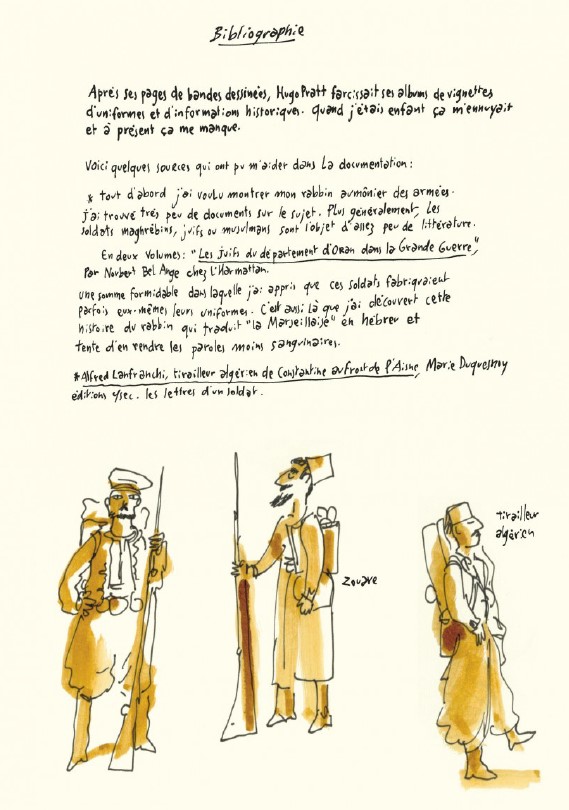 Bibliographie
Après ses pages de bandes dessinées, Hugo Pratt farcissait ses albums de vignettes
d'uniformes et d'informations historiques. Quand j'étais enfant ça m'ennuyait
et à présent ça me manque.
Voici quelques sources qui ont pu m'aider dans la documentation :
* tout d'abord j'ai voulu montrer mon rabbin aumônier des armées.
J'ai trouvé très peu de documents sur le sujet. Plus généralement, les
soldats maghrébins, juifs ou musulmans sont l'objet d'assez peu de littérature.
En deux volumes : "Les juifs du département d'Oran dans la Grande Guerre",
Par Norbert Bel Ange chez L'Harmattan.
une somme formidable dans laquelle j'ai appris que ces soldats fabriquaient
parfois eux-mêmes leurs uniformes. C'est aussi là que j'ai découvert cette
histoire du rabbin qui traduit "la Marseillaise" en hébreu et
tente d'en rendre les paroles moins sanguinaires.
* Alfred Lanfranchi, tirailleur algérien de Constantine au front de l'Aisne, Marie Duquesnoy
éditions Ysec. les lettres d'un soldat.
tirailleur
algérien
zouave